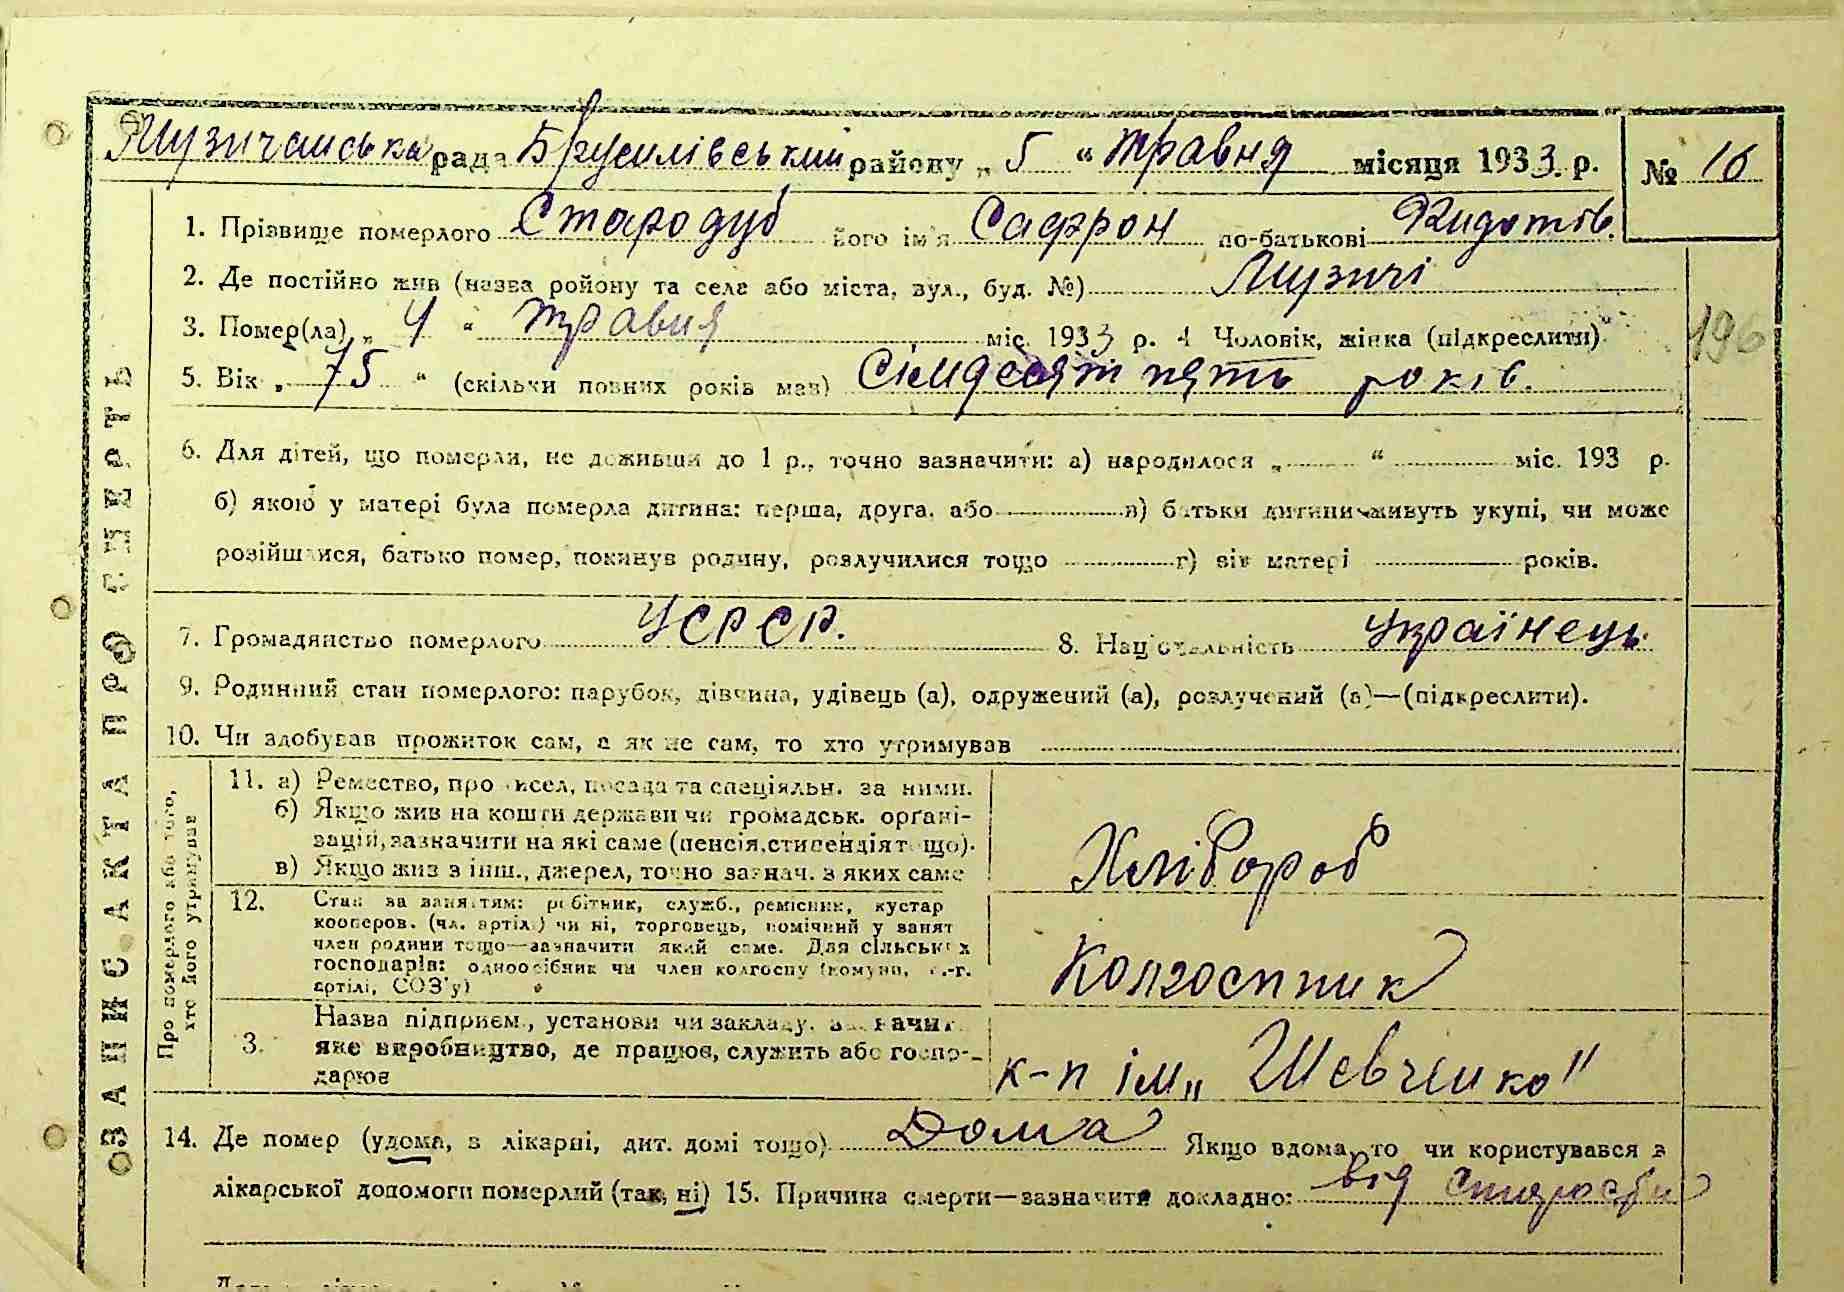 Музичанська рада Брусилівський району „ 5 “ травня місяця 1933 р. № 16
1. Прізвище померлого Стародуб його ім'я Сафрон по-батькові
2. Де постійно жив (назва ройону та села або міста, вул., буд. №) Музичі
3. Помер(ла) „ 4 “ травня міс. 1933 р. 4 Чоловік, жінка (підкреслити)
196
5. Вік „ 75 “ (скільки повних років мав) Сімдесят пять років.
6. Для дітей, що померли, не доживши до 1 р., точно зазначити: а) народилося „ “ міс. 193 р.
б) якою у матері була померла дитина: перша, друга, або в) батьки дитини живуть укупі, чи може
розійшлися, батько помер, покинув родину, розлучилися тощо г) вік матері років.
7. Громадянство померлого УСРСР. 8. Національність Українець.
9. Родинний стан померлого: парубок, дівчина, удівець (а), одружений (а), розлучений (а)—(підкреслити).
10. Чи здобував прожиток сам, а як не сам, то хто утримував
ЗАПИС АКТА ПРО СМЕРТЬ
Про померлого або того,
хто його утримував
11. а) Ремество, промисел, посада та спеціяльн. за ними.
б) Якщо жив на кошти держави чи громадськ. орґані-
зацій, зазначити на які саме (пенсія, стипендія тощо).
в) Якщо жив з інш., джерел, точно зазнач. з яких саме
Хлібороб
12. Стан за заняттям: робітник, служб., ремісник, кустар
кооперов. (чл. артілі) чи ні, торговець, помічний у занят
член родини тощо—зазначити який саме. Для сільських
господарів: одноосібник чи член колгоспу (комуни, с.-г.
артілі, СОЗ'у)
Колгоспник
Назва підприєм., установи чи закладу, зазначит.
3. яке виробництво, де працює, служить або госпо-
дарює
к-п ім „ Шевченко"
14. Де помер (удома, в лікарні, дит. домі тощо) Дома Якщо вдома, то чи користувався з
лікарської допомоги померлий (так, ні) 15. Причина смерти—зазначити докладно: від старости